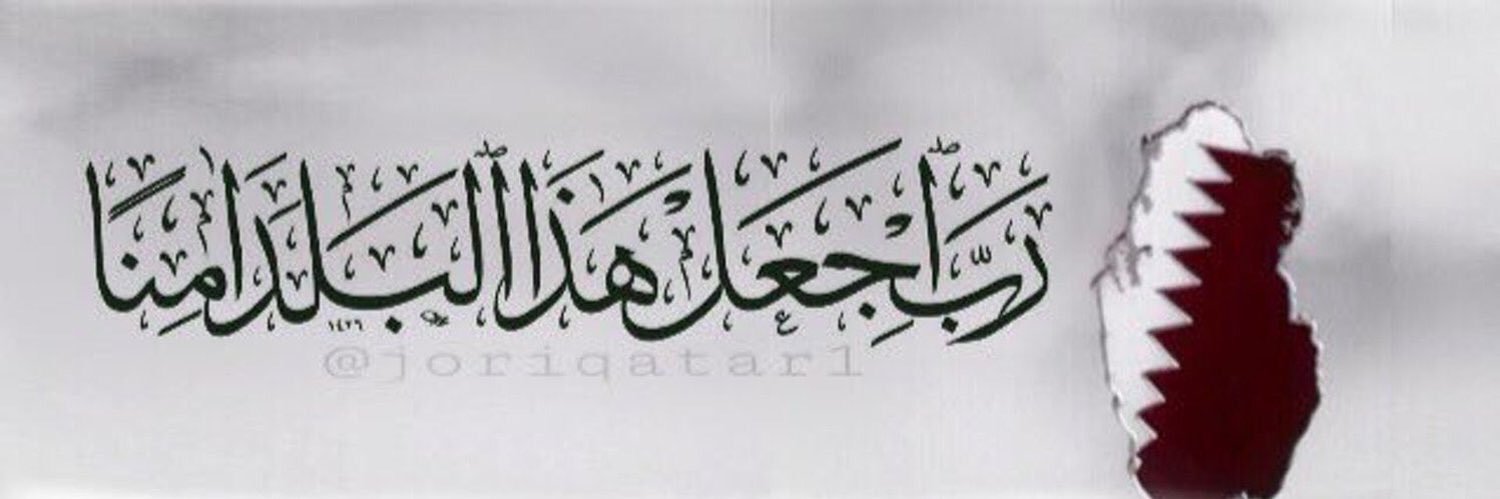 رَبِّ اجْعَلْ هَذَا الْبَلَدَ اٰمِنًا
١٤٢٦
@joriqatar1